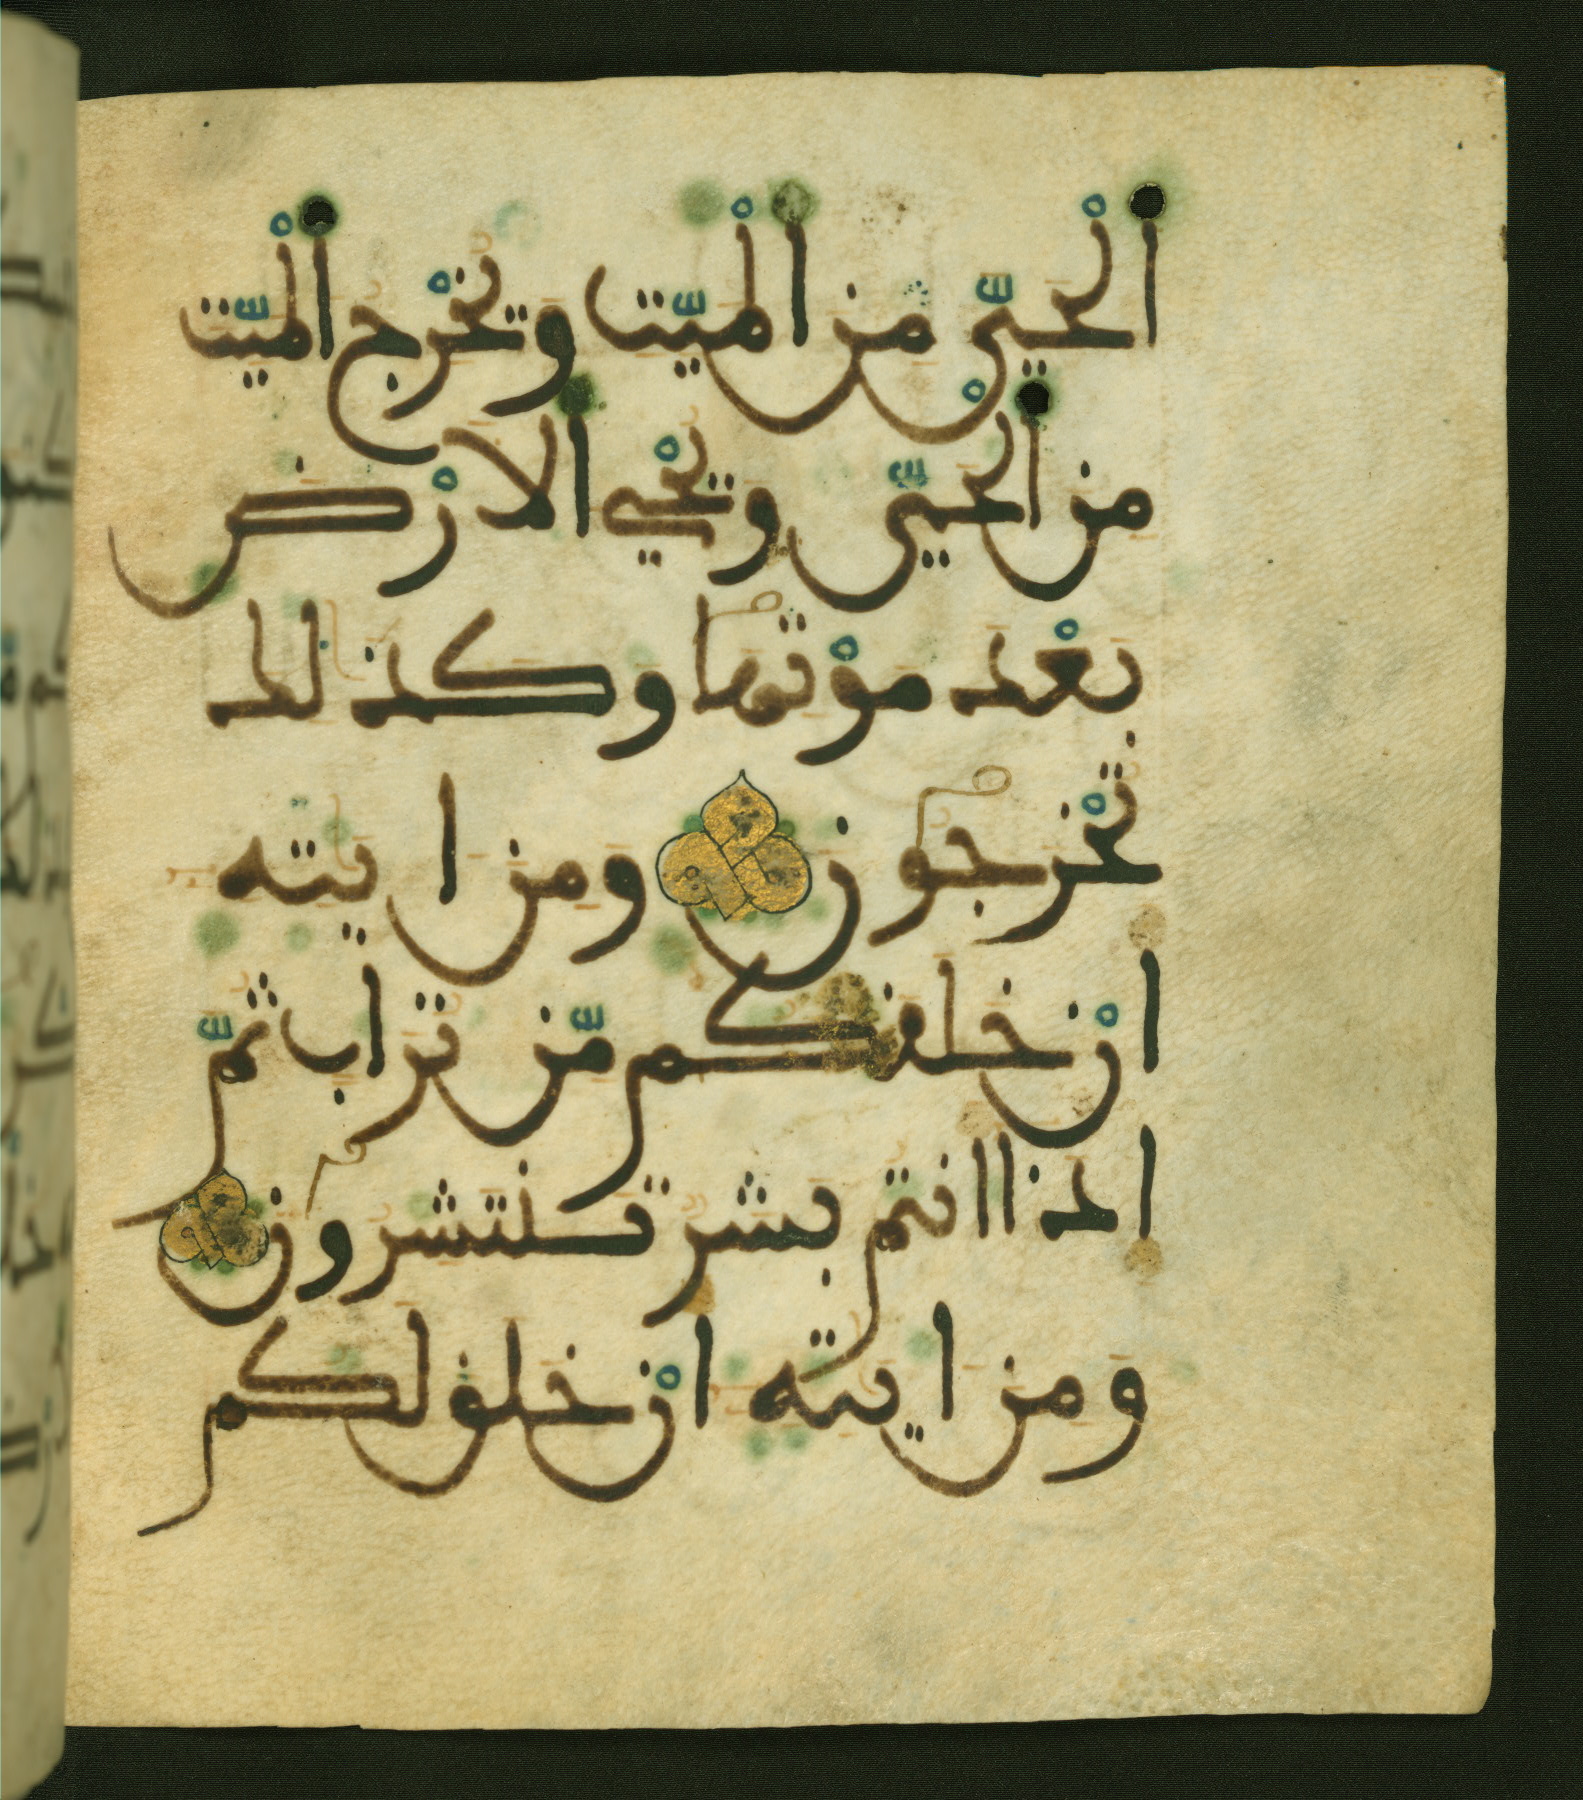 الحيّ من الميّت ويخرج الميّت
من الحيّ ويحي الارض
بعد موتها وكذلك
تخرجون ومن ايته
ان خلقكم مّن تراب ثمّ
اذا انتم بشر تنتشرون
ومن ايته ان خلق لكم